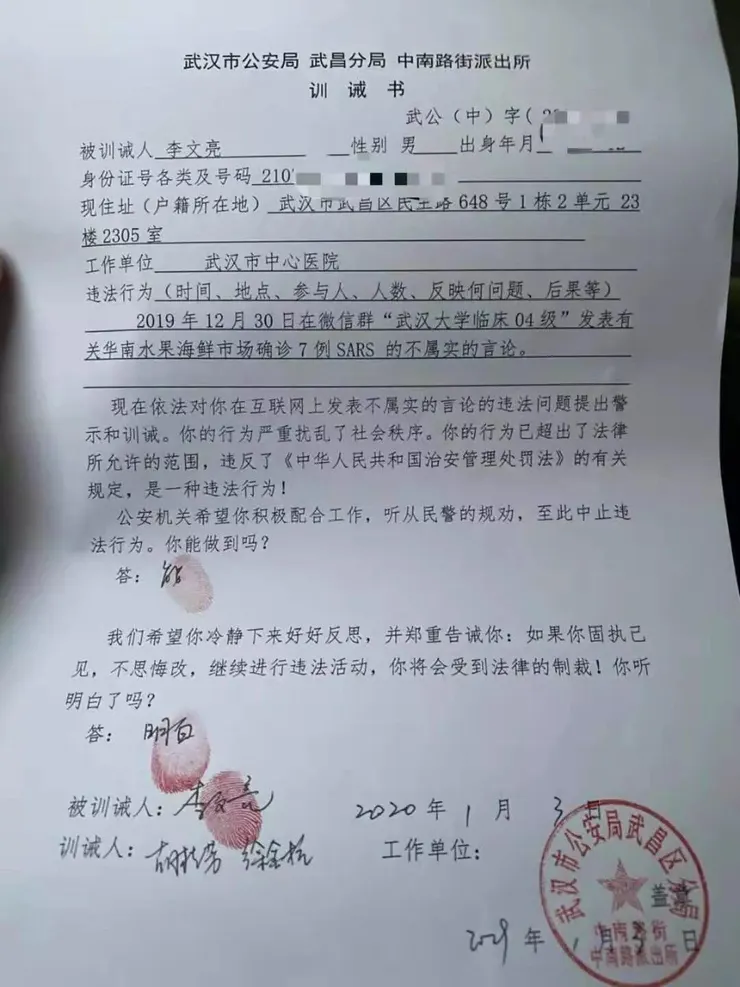 武汉市公安局 武昌分局 中南路街派出所
训 诫 书
武公（中）字(
被训诫人 李文亮 性别 男 出身年月
身份证号各类及号码 210
现住址（户籍所在地） 武汉市武昌区民主路 648 号 1 栋 2 单元 23
楼 2305 室
工作单位 武汉市中心医院
违法行为（时间、地点、参与人、人数、反映何问题、后果等）
2019 年 12 月 30 日在微信群“武汉大学临床 04 级”发表有
关华南水果海鲜市场确诊 7 例 SARS 的不属实的言论。
现在依法对你在互联网上发表不属实的言论的违法问题提出警
示和训诫。你的行为严重扰乱了社会秩序。你的行为已超出了法律
所允许的范围，违反了《中华人民共和国治安管理处罚法》的有关
规定，是一种违法行为！
公安机关希望你积极配合工作，听从民警的规劝，至此中止违
法行为。你能做到吗？
答：能
我们希望你冷静下来好好反思，并郑重告诫你：如果你固执己
见，不思悔改，继续进行违法活动，你将会受到法律的制裁！你听
明白了吗？
答：明白
被训诫人：李文亮 2020 年 1 月 3 日
训诫人： 工作单位：
武汉市公安局武昌区分局
盖章
中南路街
中南路派出所
年 1 月 3 日